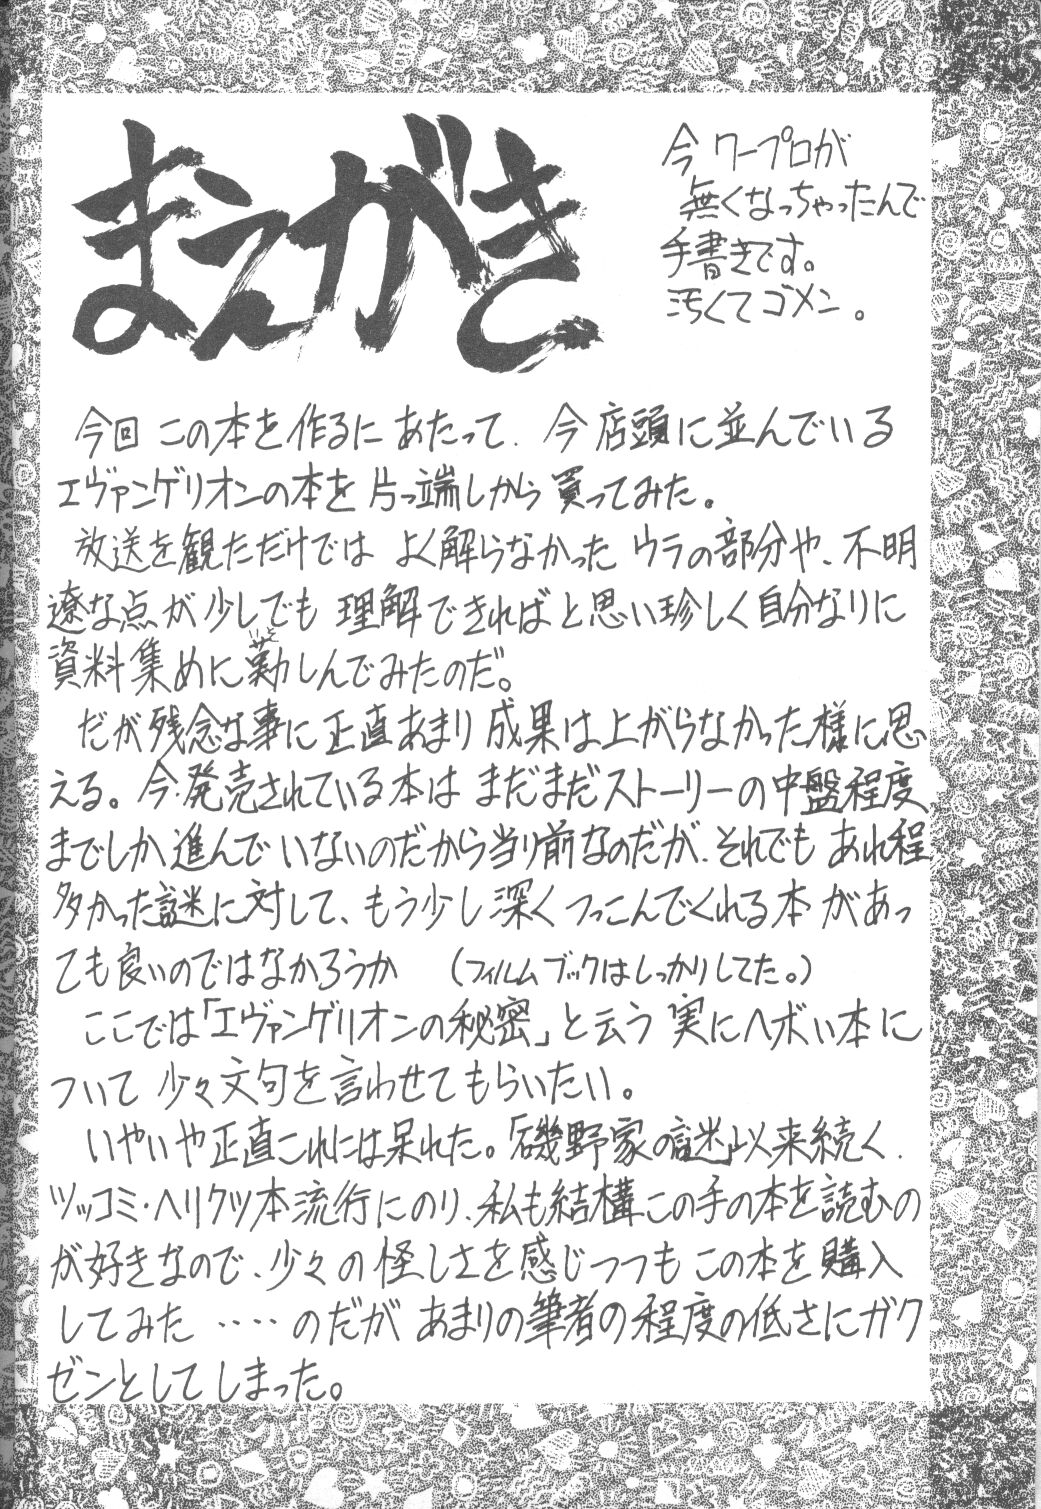 まえがき
今ワープロが
無くなっちゃったんで
手書きです。
汚くてゴメン。
今回この本を作るにあたって、今店頭に並んでいる
エヴァンゲリオンの本を片っ端しから買ってみた。
放送を観ただけでは よく解らなかった ウラの部分や、不明
遼な点が少しでも 理解できればと思い珍しく自分なりに
資料集めに勤しんでみたのだ。
だが残念な事に正直あまり成果は上がらなかった様に思
える。今、発売されている本は まだまだストーリーの中盤程度
までしか進んでいないのだから当り前なのだが、それでも あれ程
多かった謎に対して、もう少し深くつっこんでくれる本があっ
ても良いのではなかろうか (フィルムブックはしっかりしてた。)
ここでは「エヴァンゲリオンの秘密」と云う実にヘボい本に
ついて少々文句を言わせてもらいたい。
いやいや正直これには呆れた。「磯野家の謎」以来続く、
ツッコミ・ヘリクツ本流行にのり、私も結構この手の本を読むの
が好きなので、少々の怪しさを感じつつもこの本を購入
してみた ‥‥のだが あまりの筆者の程度の低さにガク
ゼンとしてしまった。